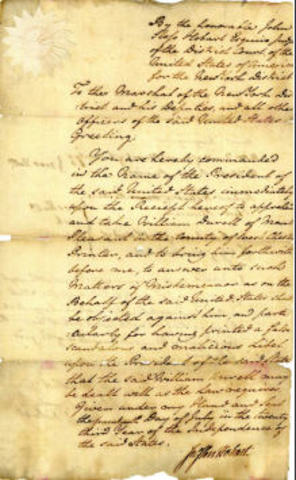 By the honorable John
Sloss Hobart Esquire Judge
of the District Court of the
United States of America
for the New York District
To the Marshal of the New York Dis
trict and his Deputies, and all other
Officers of the said United States
Greeting
You are hereby commanded
in the Name of the President of
the said United States immediately
upon the Receipt hereof to apprehend
and take William Durell of Mount
Pleasant in the County of West Chester
Printer, and to bring him forthwith
before me, to answer unto such
Matters of Misdemeanor as on the
Behalf of the said United States shall
be objected against him, and parti
cularly for having printed a false
scandalous and malicious Libel
upon the President of the said States
that the said William Durell may
be dealt with as the law requires
Given under my Hand and Seal
the Day of July in the twenty
third Year of the Independence of
the said States.
Jn Sloss Hobart